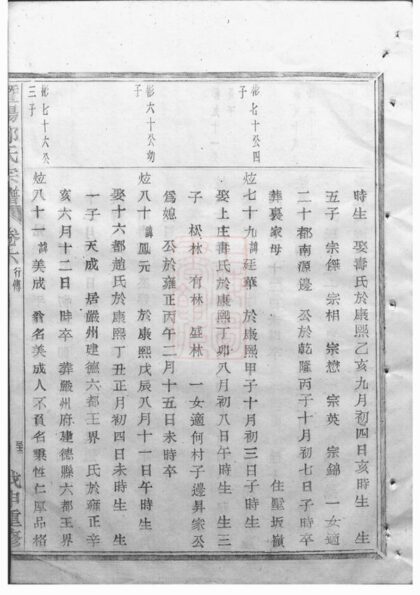 時生 娶壽氏於康熙乙亥九月初四日亥時生 生
五子 宗傑 宗相 宗懋 宗英 宗錦 一女適
二十都南源邊 公於乾隆丙子十月初七日子時卒
葬裏家母 住壓坂嶺
彬七十公四
子
炫七十九諱廷華 於康熙甲子十月初三日子時生
娶上庄壽氏於康熙丁卯八月初八日午時生 生三
子 松林 有林 盛林 一女適何村子邊昇家公
爲媳 公於雍正丙午二月十五日未時卒
彬六十公幼
子
炫八十諱鳳元 於康熙戊辰八月十一日午時生
娶十六都趙氏於康熙丁丑正月初四日未時生 生
一子 天成 居嚴州建德六都王界 氏於雍正辛
亥六月十二日時卒 葬嚴州府建德縣六都王界
彬七十六公
三子
炫八十一諱美成 爲名美成人不負名秉性仁厚品格
暨陽 氏宗譜 卷六 行傳
戊申重修